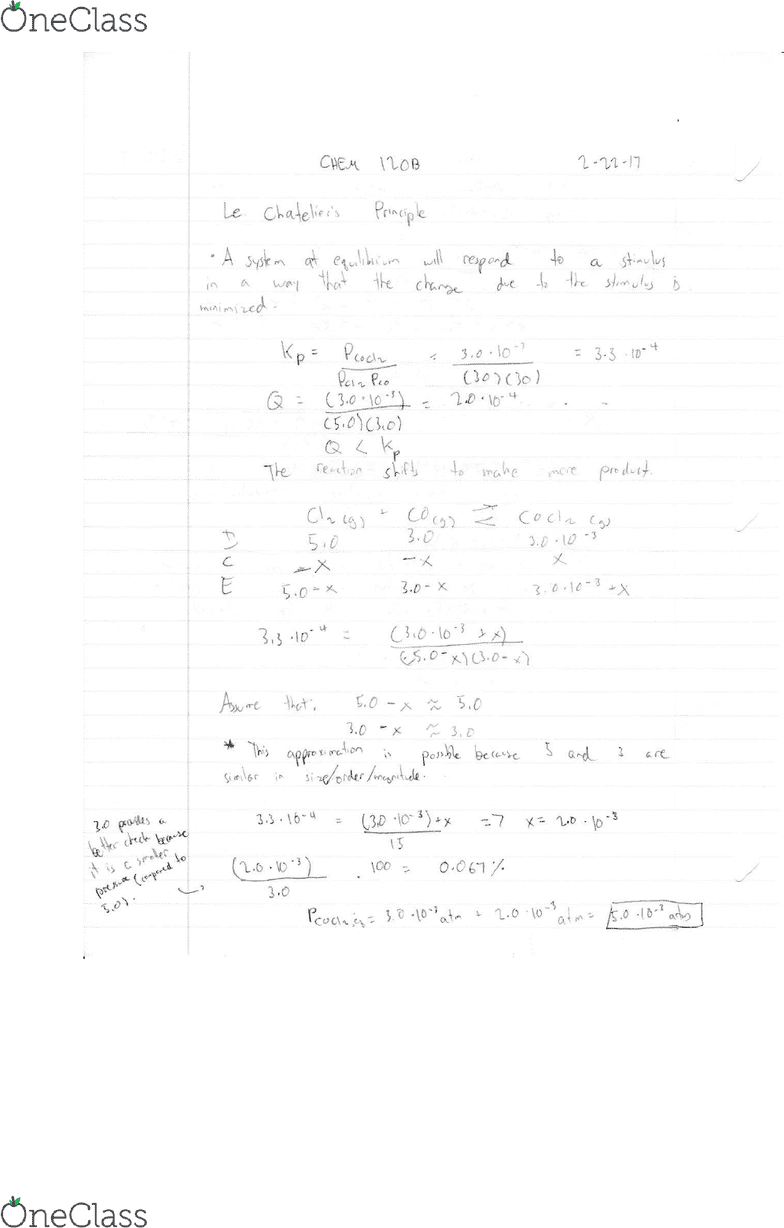 OneClass
CHEM 120B 2-22-17
Le Chatelier's Principle
• A system at equilibrium will respond to a stimulus
in a way that the change due to the stimulus is
minimized.
Kp = PCOCl2 / PCl2 PCO = 3.0·10⁻³ / (3.0)(3.0) = 3.3·10⁻⁴
Q = (3.0·10⁻³) / (5.0)(3.0) = 2.0·10⁻⁴
Q < Kp
The reaction shifts to make more product.
Cl2 (g) + CO (g) ⇌ COCl2 (g)
5.0 3.0 3.0·10⁻³
C -x -x x
E 5.0-x 3.0-x 3.0·10⁻³+x
3.3·10⁻⁴ = (3.0·10⁻³ + x) / (5.0-x)(3.0-x)
Assume that: 5.0 - x ≈ 5.0
3.0 - x ≈ 3.0
* This approximation is possible because 5 and 3 are
similar in size/order/magnitude.
3.3·10⁻⁴ = (3.0·10⁻³)+x / 15 => x = 2.0·10⁻³
(2.0·10⁻³) / 3.0 · 100 = 0.067%
3.0 provides a
better check because
it is a smaller
pressure (compared to
5.0).
PCOCl2,eq = 3.0·10⁻³ atm + 2.0·10⁻³ atm = 5.0·10⁻³ atm
OneClass